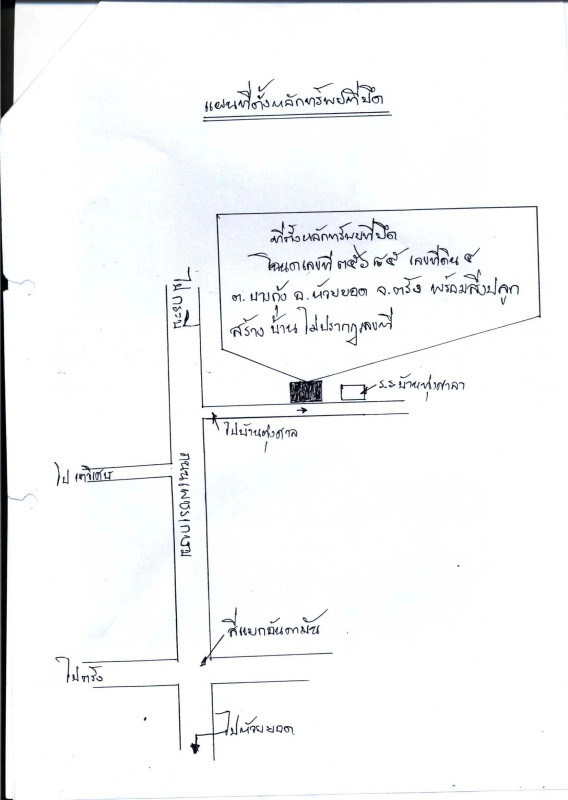 แผนที่ตั้งหลักทรัพย์ที่ยึด
ที่ตั้งหลักทรัพย์ที่ยึด
โฉนดเลขที่ ๓๕๖๘๕ เลขที่ดิน ๔
ต. บางกุ้ง อ. ห้วยยอด จ. ตรัง พร้อมสิ่งปลูก
สร้าง บ้าน ไม่ปรากฏเลขที่
ไป
ร.ร.บ้านทุ่งศาลา
ไปบ้านทุ่งศาล
ไป
ถนนเพชรเกษม
สี่แยกอันดามัน
ไปตรัง
ไปห้วยยอด